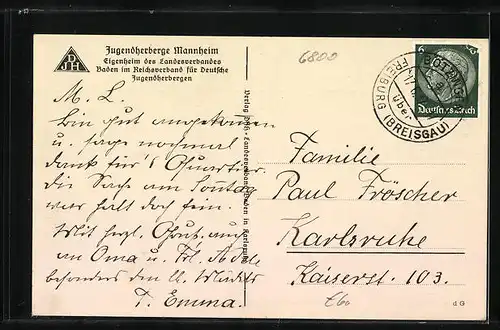 Jugendherberge Mannheim
Eigenheim des Landesverbandes
Baden im Reichsverband für Deutsche
Jugendherbergen
DJH
6800
M. L.
Bin gut angekommen
u. sage nochmal
dank für's Quartier.
die Sache am Sonntag
war halt doch fein.
Mit herzl. Gruß auch
an Oma u. Frl. Adele
besonders den lb.
T. Emma.
Verlag DJH-Landesverband Baden in Karlsruhe
6 6
Deutsches Reich
FREIBURG
(BREISGAU)
über
Familie
Paul Fröscher
Karlsruhe
Kaiserst. 103.
d G